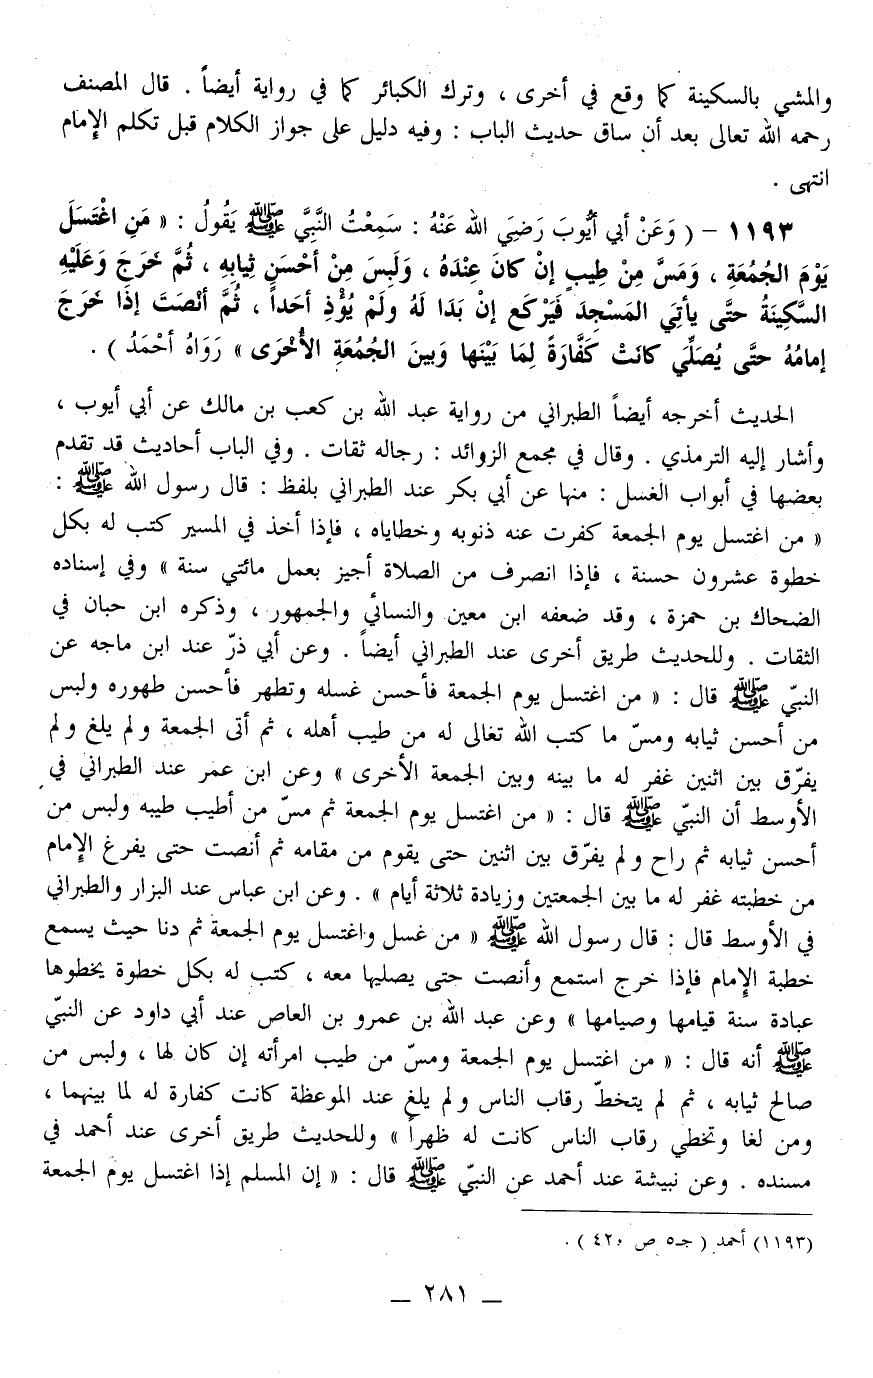 والمشي بالسكينة كما وقع في أخرى ، وترك الكبائر كما في رواية أيضاً . قال المصنف
رحمه الله تعالى بعد أن ساق حديث الباب : وفيه دليل على جواز الكلام قبل تكلم الإمام
انتهى .
١١٩٣ – ( وَعَنْ أبي أيُّوبَ رَضِيَ الله عَنْهُ : سَمِعْتُ النَّبِيَّ ﷺ يَقُولُ : « مَنِ اغْتَسَلَ
يَوْمَ الجُمُعَةِ ، وَمَسَّ مِنْ طِيبٍ إنْ كانَ عِنْدَهُ ، وَلَبِسَ مِنْ أحْسَنِ ثِيابِهِ ، ثُمَّ خَرَجَ وَعَلَيْهِ
السَّكِينَةُ حتَّى يأتِي المَسْجِدَ فَيَرْكَع إنْ بَدَا لَهُ ولَمْ يُؤْذِ أحَداً ، ثُمَّ أنْصَتَ إذَا خَرَجَ
إمامُهُ حتَّى يُصَلِّي كانَتْ كَفَّارَةً لِمَا بَيْنَها وَبينَ الجُمُعَةِ الأُخْرَى » رَوَاهُ أحْمَدُ ) .
الحديث أخرجه أيضاً الطبراني من رواية عبد الله بن كعب بن مالك عن أبي أيوب ،
وأشار إليه الترمذي . وقال في مجمع الزوائد : رجاله ثقات . وفي الباب أحاديث قد تقدم
بعضها في أبواب الغسل : منها عن أبي بكر عند الطبراني بلفظ : قال رسول الله ﷺ :
« من اغتسل يوم الجمعة كفرت عنه ذنوبه وخطاياه ، فإذا أخذ في المسير كتب له بكل
خطوة عشرون حسنة ، فإذا انصرف من الصلاة أجيز بعمل مائتي سنة » وفي إسناده
الضحاك بن حمزة ، وقد ضعفه ابن معين والنسائي والجمهور ، وذكره ابن حبان في
الثقات . وللحديث طريق أخرى عند الطبراني أيضاً . وعن أبي ذرّ عند ابن ماجه عن
النبيّ ﷺ قال : « من اغتسل يوم الجمعة فأحسن غسله وتطهر فأحسن طهوره ولبس
من أحسن ثيابه ومسّ ما كتب الله تعالى له من طيب أهله ، ثم أتى الجمعة ولم يلغ ولم
يفرّق بين اثنين غفر له ما بينه وبين الجمعة الأخرى » وعن ابن عمر عند الطبراني في
الأوسط أن النبيّ ﷺ قال : « من اغتسل يوم الجمعة ثم مسّ من أطيب طيبه ولبس من
أحسن ثيابه ثم راح ولم يفرّق بين اثنين حتى يقوم من مقامه ثم أنصت حتى يفرغ الإمام
من خطبته غفر له ما بين الجمعتين وزيادة ثلاثة أيام » . وعن ابن عباس عند البزار والطبراني
في الأوسط قال : قال رسول الله ﷺ « من غسل واغتسل يوم الجمعة ثم دنا حيث يسمع
خطبة الإمام فإذا خرج استمع وأنصت حتى يصليها معه ، كتب له بكل خطوة يخطوها
عبادة سنة قيامها وصيامها » وعن عبد الله بن عمرو بن العاص عند أبي داود عن النبيّ
ﷺ أنه قال : « من اغتسل يوم الجمعة ومسّ من طيب امرأته إن كان لها ، ولبس من
صالح ثيابه ، ثم لم يتخطّ رقاب الناس ولم يلغ عند الموعظة كانت كفارة له لما بينهما ،
ومن لغا وتخطي رقاب الناس كانت له ظهراً » وللحديث طريق أخرى عند أحمد في
مسنده . وعن نبيشة عند أحمد عن النبيّ ﷺ قال : « إن المسلم إذا اغتسل يوم الجمعة
(١١٩٣) أحمد ( جـ٥ ص ٤٢٠ ) .
_ ٢٨١ _